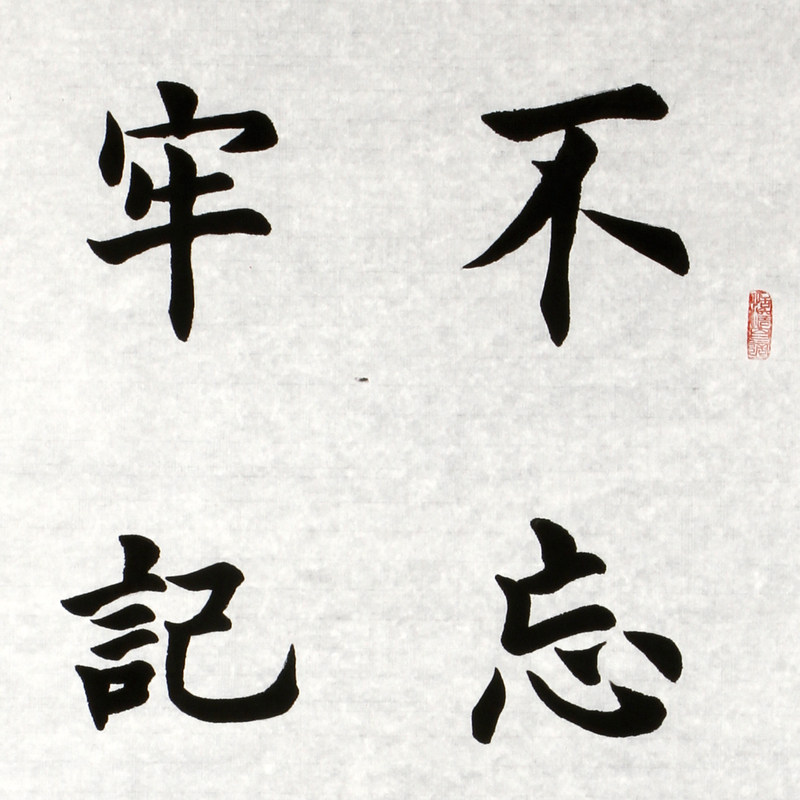 不忘
牢記